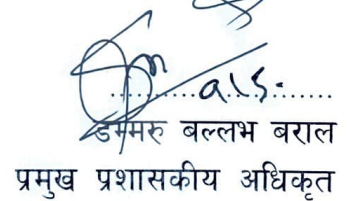 डम्मरु बल्लभ बराल
प्रमुख प्रशासकीय अधिकृत